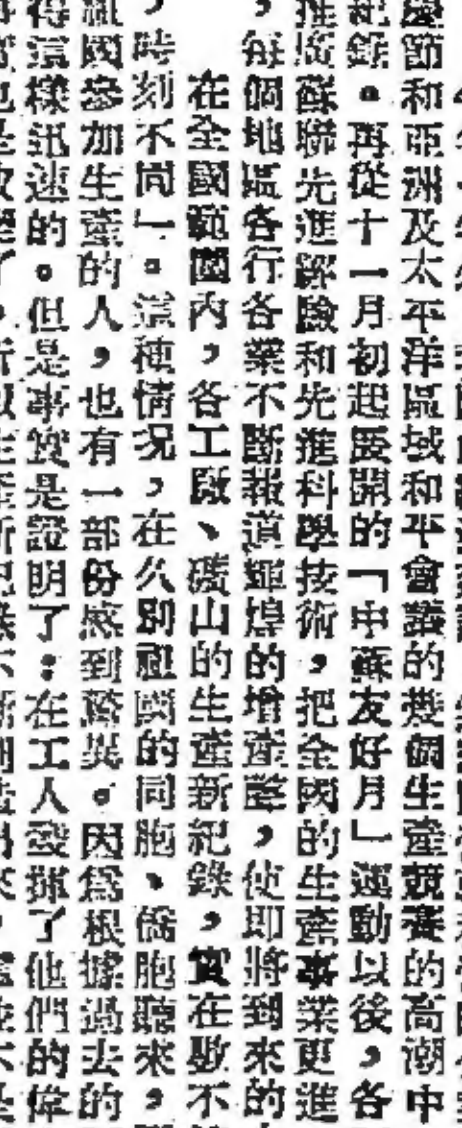 慶節和亞洲及太平洋區域和平會議的幾個生產競賽的高潮中
紀錄。再從十一月初起展開的「中蘇友好月」運動以後,各
推廣蘇聯先進經驗和先進科學技術,把全國的生產事業更進
,每個地區各行各業不斷報道輝煌的增產聲,使即將到來的
在全國範圍內,各工廠、礦山的生產新紀錄,實在數不
,時刻不同」。這種情況,在久別祖國的同胞、僑胞聽來,
國參加生產的人,也有一部份感到驚異。因爲根據過去的
得這樣迅速的。但是事實是證明了:在工人發揮了他們的偉